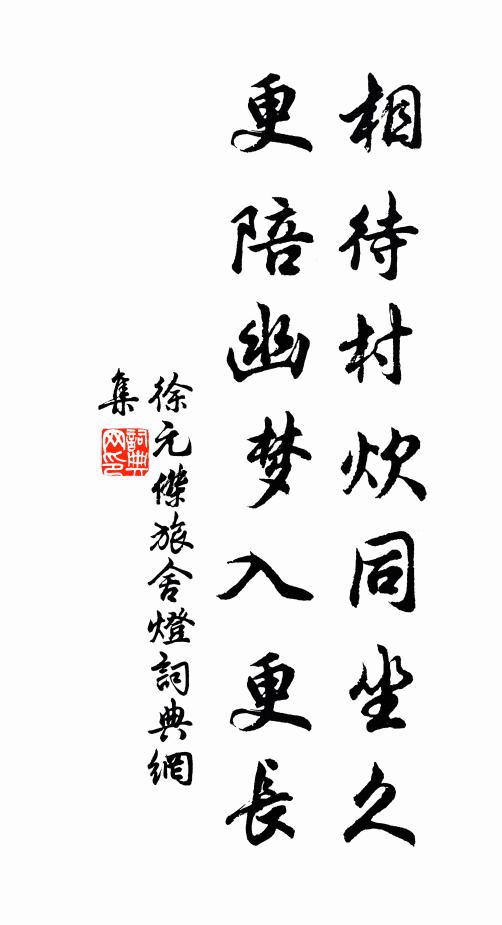 相待村炊同坐久
更陪幽梦入更長
徐元傑旅舍燈詞典網
集
詞典
网印